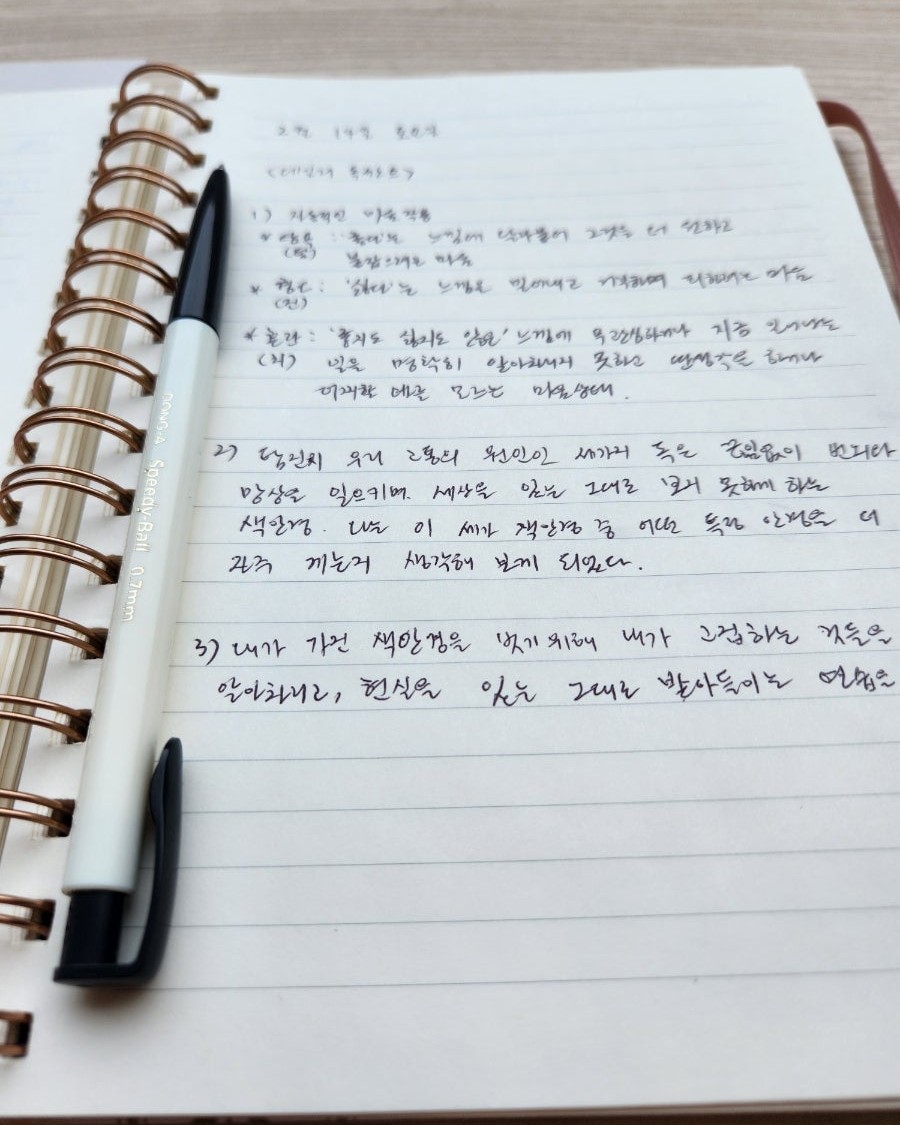 2월 14일 토요일
<데일리 독서노트>
1) 지속적인 마음작용
* 탐욕 : '좋다'는 느낌에 달라붙어 그것을 더 원하고
(탐) 붙잡으려는 마음
* 혐오 : '싫다'는 느낌을 밀어내고 거부하며 피하려는 마음
(진)
* 혼란 : '좋지도 싫지도 않은' 느낌에 무관심하거나 지금 일어나는
(치) 일을 명확히 알아차리지 못하고 딴생각을 하거나
어찌할 바를 모르는 마음상태.
2) 탐진치 우리 고통의 원인인 세가지 독은 끊임없이 번뇌와
망상을 일으키며. 세상을 있는 그대로 보지 못하게 하는
색안경. 나는 이 세가 색안경 중 어떤 독한 안경을 더
자주 끼는지 생각해 보게 되었다.
3) 내가 가진 색안경을 벗기위해 내가 고집하는 것들을
알아차리고, 현실을 있는 그대로 받아들이는 연습을
DONG-A Speedy-Ball 0.7mm